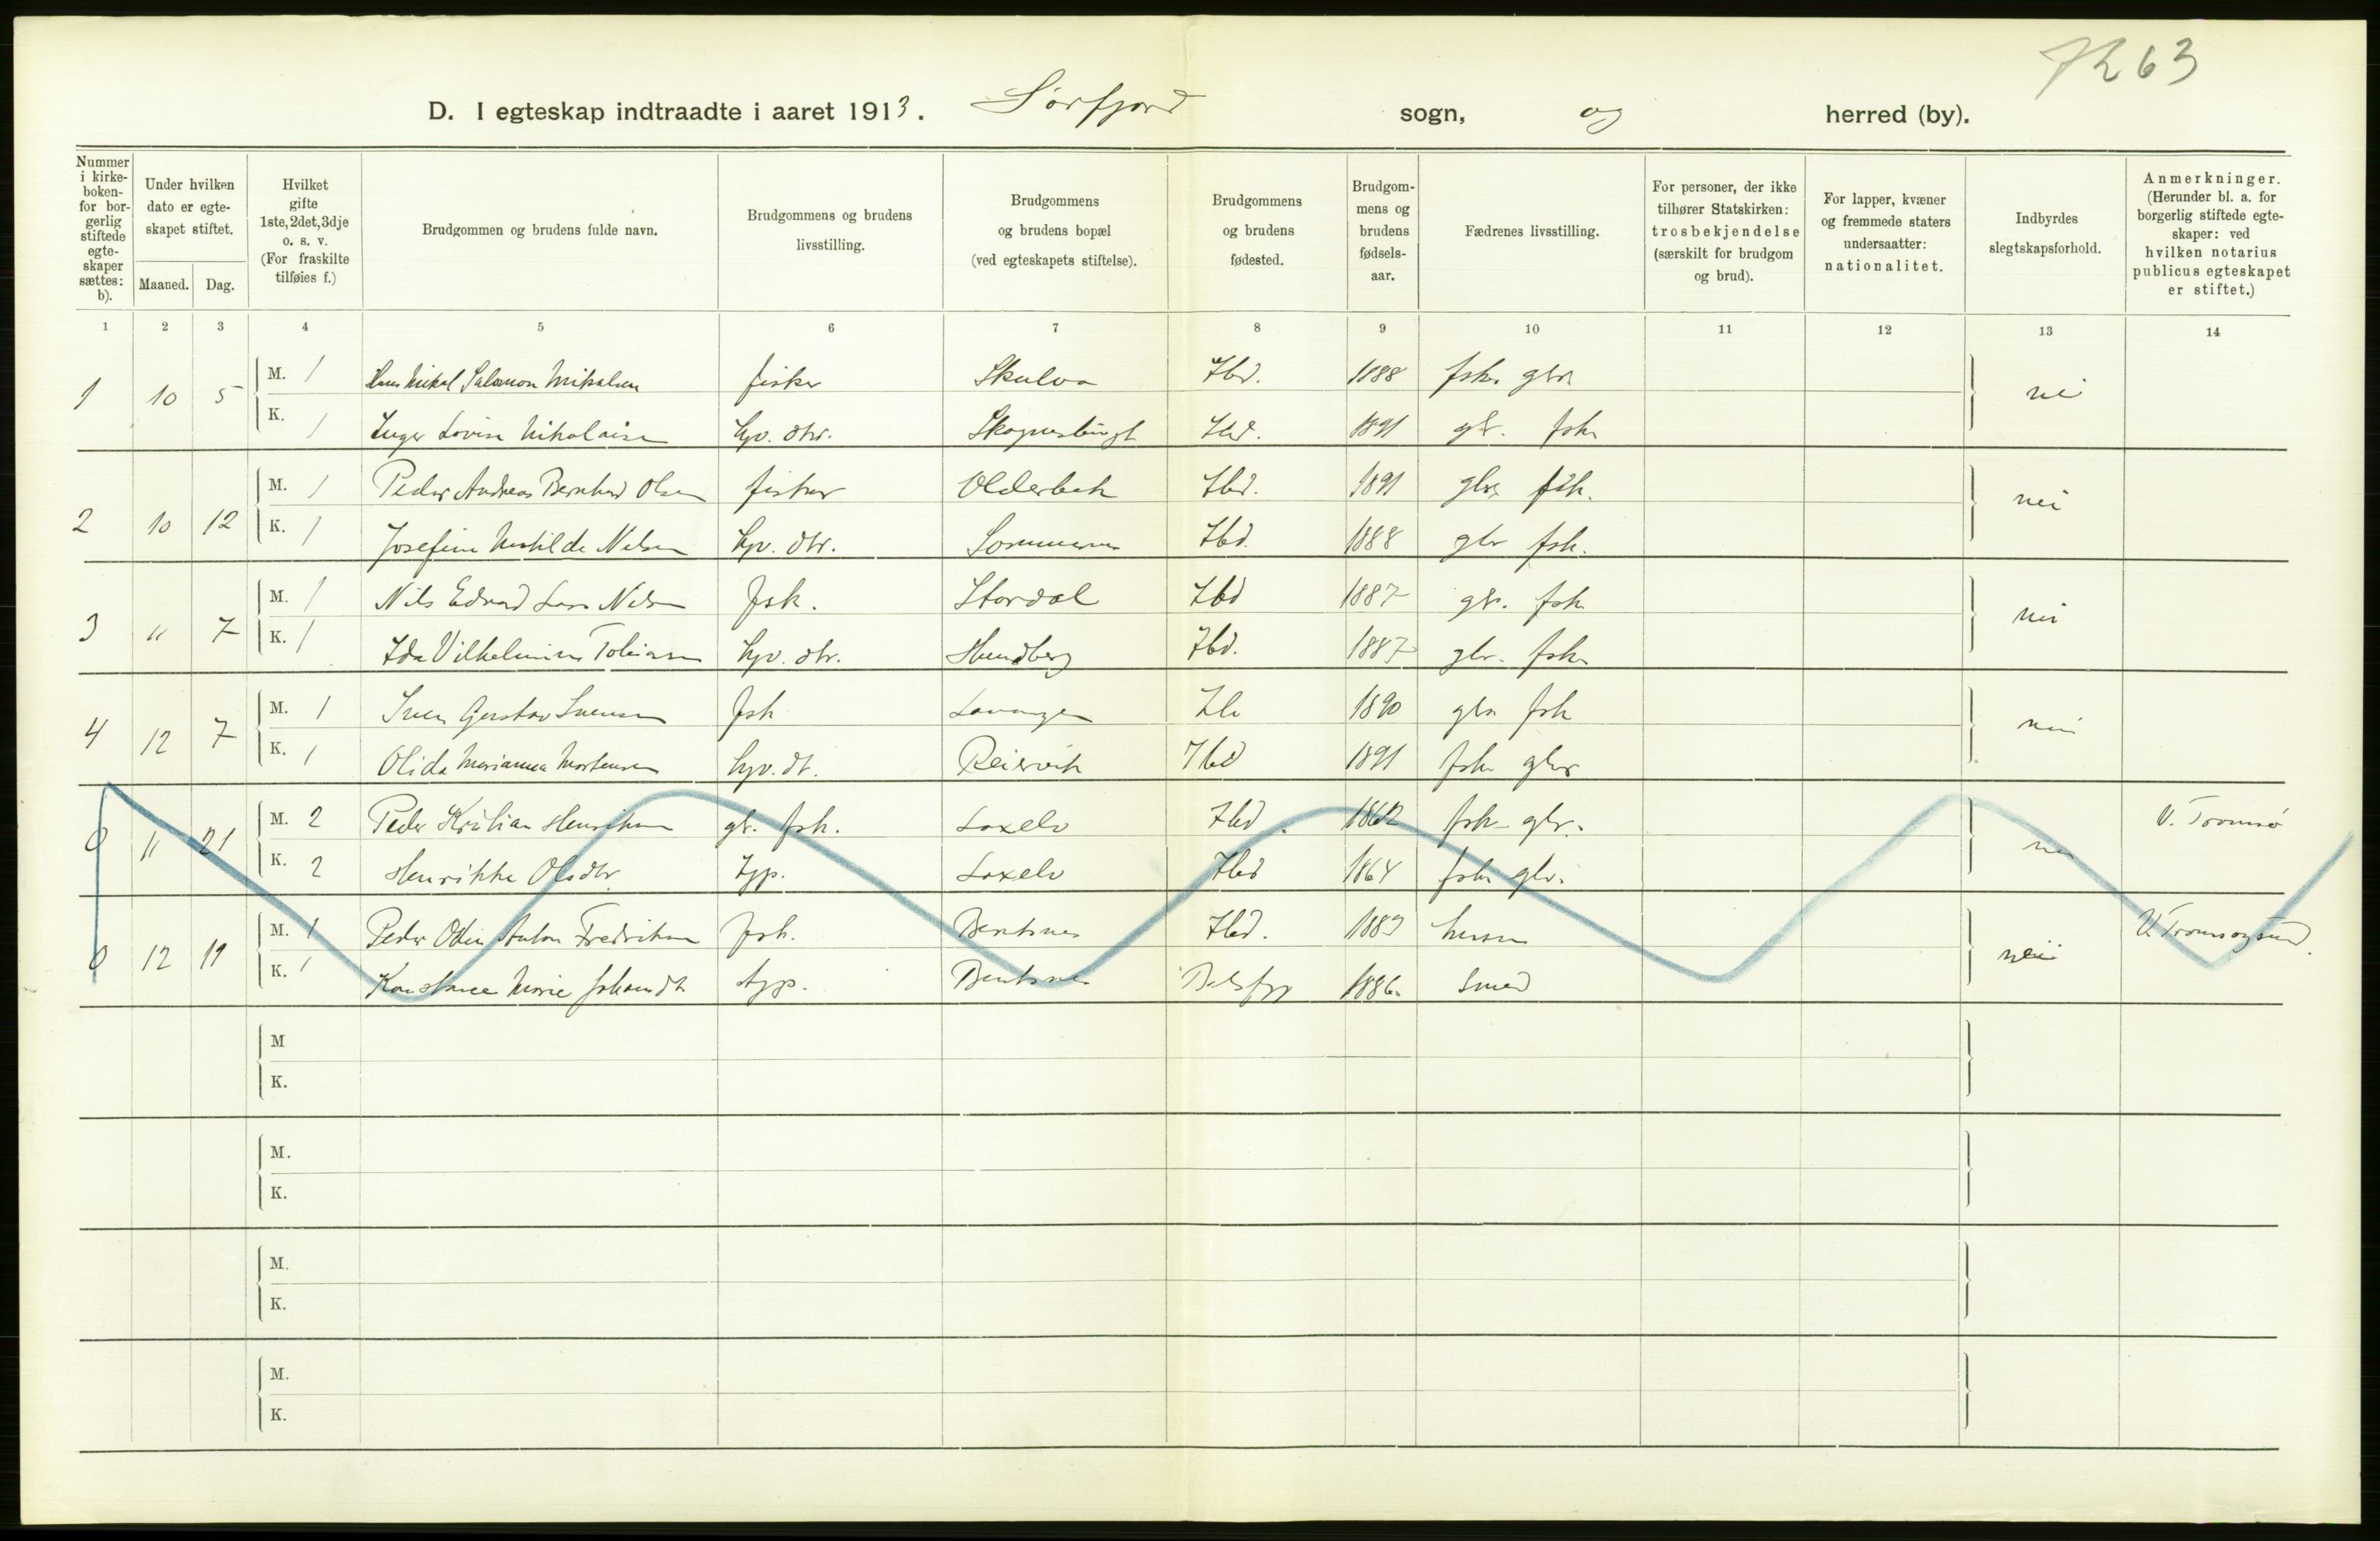 7263
D. I egteskap indtraadte i aaret 1913. Sørfjord sogn, og herred (by).
Nummer i kirkeboken- for borgerlig stiftede egteskaper sættes: b).
Under hvilken dato er egteskapet stiftet.
Maaned. Dag.
Hvilket gifte 1ste, 2det, 3dje o. s. v. (For fraskilte tilføies f.)
Brudgommen og brudens fulde navn.
Brudgommens og brudens livsstilling.
Brudgommens og brudens bopæl (ved egteskapets stiftelse).
Brudgommens og brudens fødested.
Brudgommens og brudens fødselsaar.
Fædrenes livsstilling.
For personer, der ikke tilhører Statskirken: trosbekjendelse (særskilt for brudgom og brud).
For lapper, kvæner og fremmede staters undersaatter: nationalitet.
Indbyrdes slegtskapsforhold.
Anmerkninger. (Herunder bl. a. for borgerlig stiftede egteskaper: ved hvilken notarius publicus egteskapet er stiftet.)
1 2 3 4 5 6 7 8 9 10 11 12 13 14
1 10 5 M. 1 Hans Mikal Salamon Mikalsen fisker Skulva Ibd. 1888 fsk. gbr. nei
K. 1 Inger Lovise Nikolaisen hjv. dtr. Skognesbugt Ibd. 1891 gbr. fsk.
2 10 12 M. 1 Peder Andreas Bernhard Olsen fisker Olderbek Ibd. 1891 gbr. fsk. nei
K. 1 Josefine Matilde Nilsen hjv. dtr. Sommernes Ibd. 1888 gbr fsk.
3 11 7 M. 1 Nils Edvard Lars Nilsen fsk. Stordal Ibd 1887 gbr. fsk nei
K. 1 Ida Vilhelmine Tobiasen hjv. dtr. Hundberg Ibd. 1887 gbr. fsk
4 12 7 M. 1 Sven Gustav Svensen fsk Lavangen Ib 1890 gbr fsk nei
K. 1 Olida Marianna Mortensen hjv. dt. Reiervik Ibd 1891 fsk gbr
0 11 21 M. 2 Peder Kristian Henriksen gbr. fsk. Laxelv Ibd. 1862 fsk gbr. nei V. Tromsø
K. 2 Henrikke Olsdtr. Laxelv Ibd 1864 fsk gbr.
0 12 19 M. 1 Peder Odin Anton Fredriksen fsk. Bentsnes Ibd. 1889 husm nei V. Tromsøysund.
K. 1 Konstance Marie Johansdt. Bentsnes Balsfj 1886. smed
M
K.
M.
K.
M.
K.
M.
K.